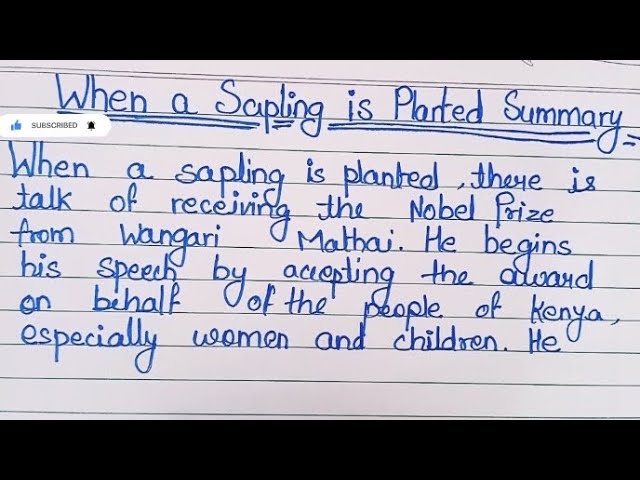 When a Sapling is Planted Summary
SUBSCRIBED
When a sapling is planted, there is
talk of receiving the Nobel Prize
from Wangari Mathai. He begins
his speech by accepting the award
on behalf of the people of Kenya,
especially women and children. He